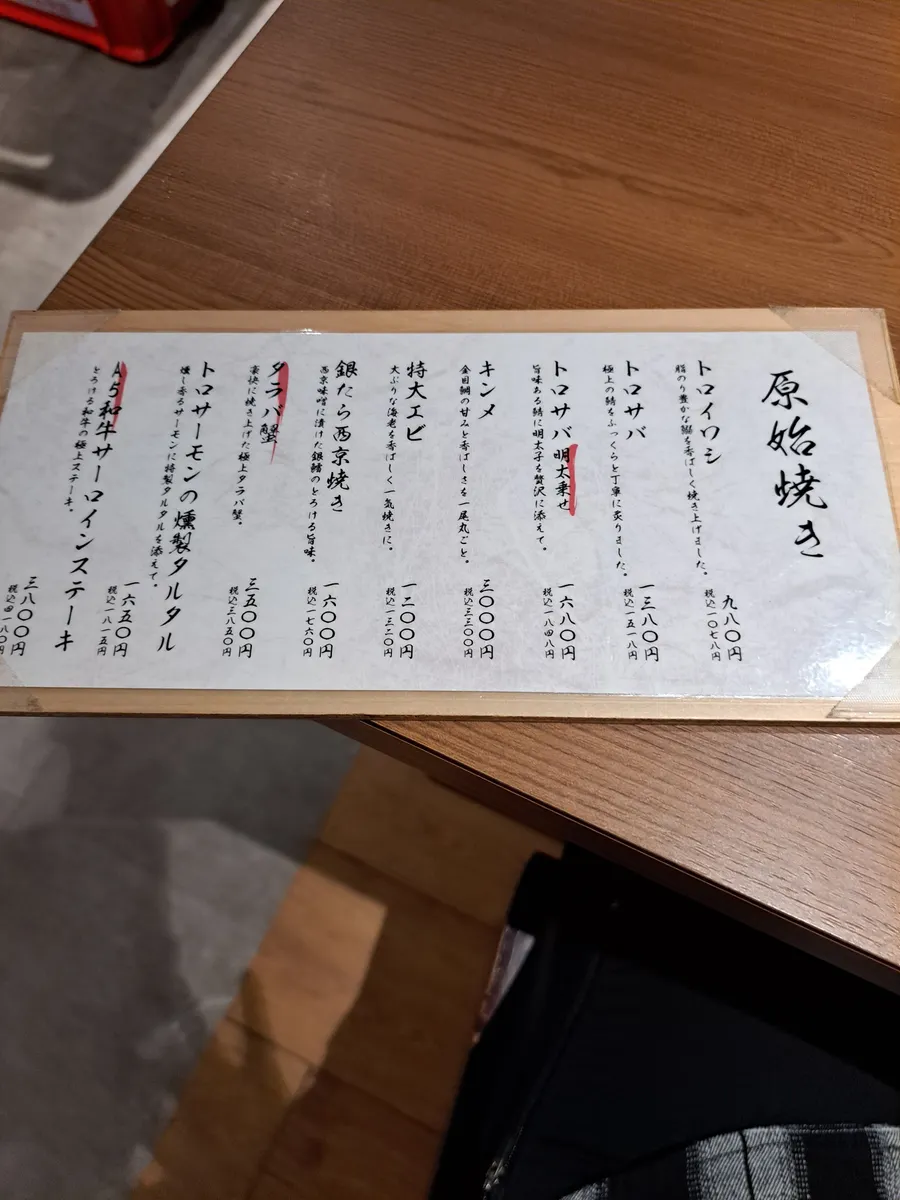 原始焼き
トロイワシ
脂のり豊かな鰯を香ばしく焼き上げました。
九八〇円
税込一〇七八円
トロサバ
極上の鯖をふっくらと丁寧に炙りました。
一三八〇円
税込一五一八円
トロサバ明太乗せ
旨味ある鯖に明太子を贅沢に添えて。
一六八〇円
税込一八四八円
キンメ
金目鯛の甘みと香ばしさを一尾丸ごと。
三〇〇〇円
税込三三〇〇円
特大エビ
大ぶりな海老を香ばしく一気焼きに。
一二〇〇円
税込一三二〇円
銀たら西京焼き
西京味噌に漬けた銀鱈のとろける旨味。
一六〇〇円
税込一七六〇円
タラバ蟹
豪快に焼き上げた極上タラバ蟹。
三五〇〇円
税込三八五〇円
トロサーモンの燻製タルタル
燻し香るサーモンに特製タルタルを添えて。
一六五〇円
税込一八一五円
A5和牛サーロインステーキ
とろける和牛の極上ステーキ。
三八〇〇円
税込四一八〇円